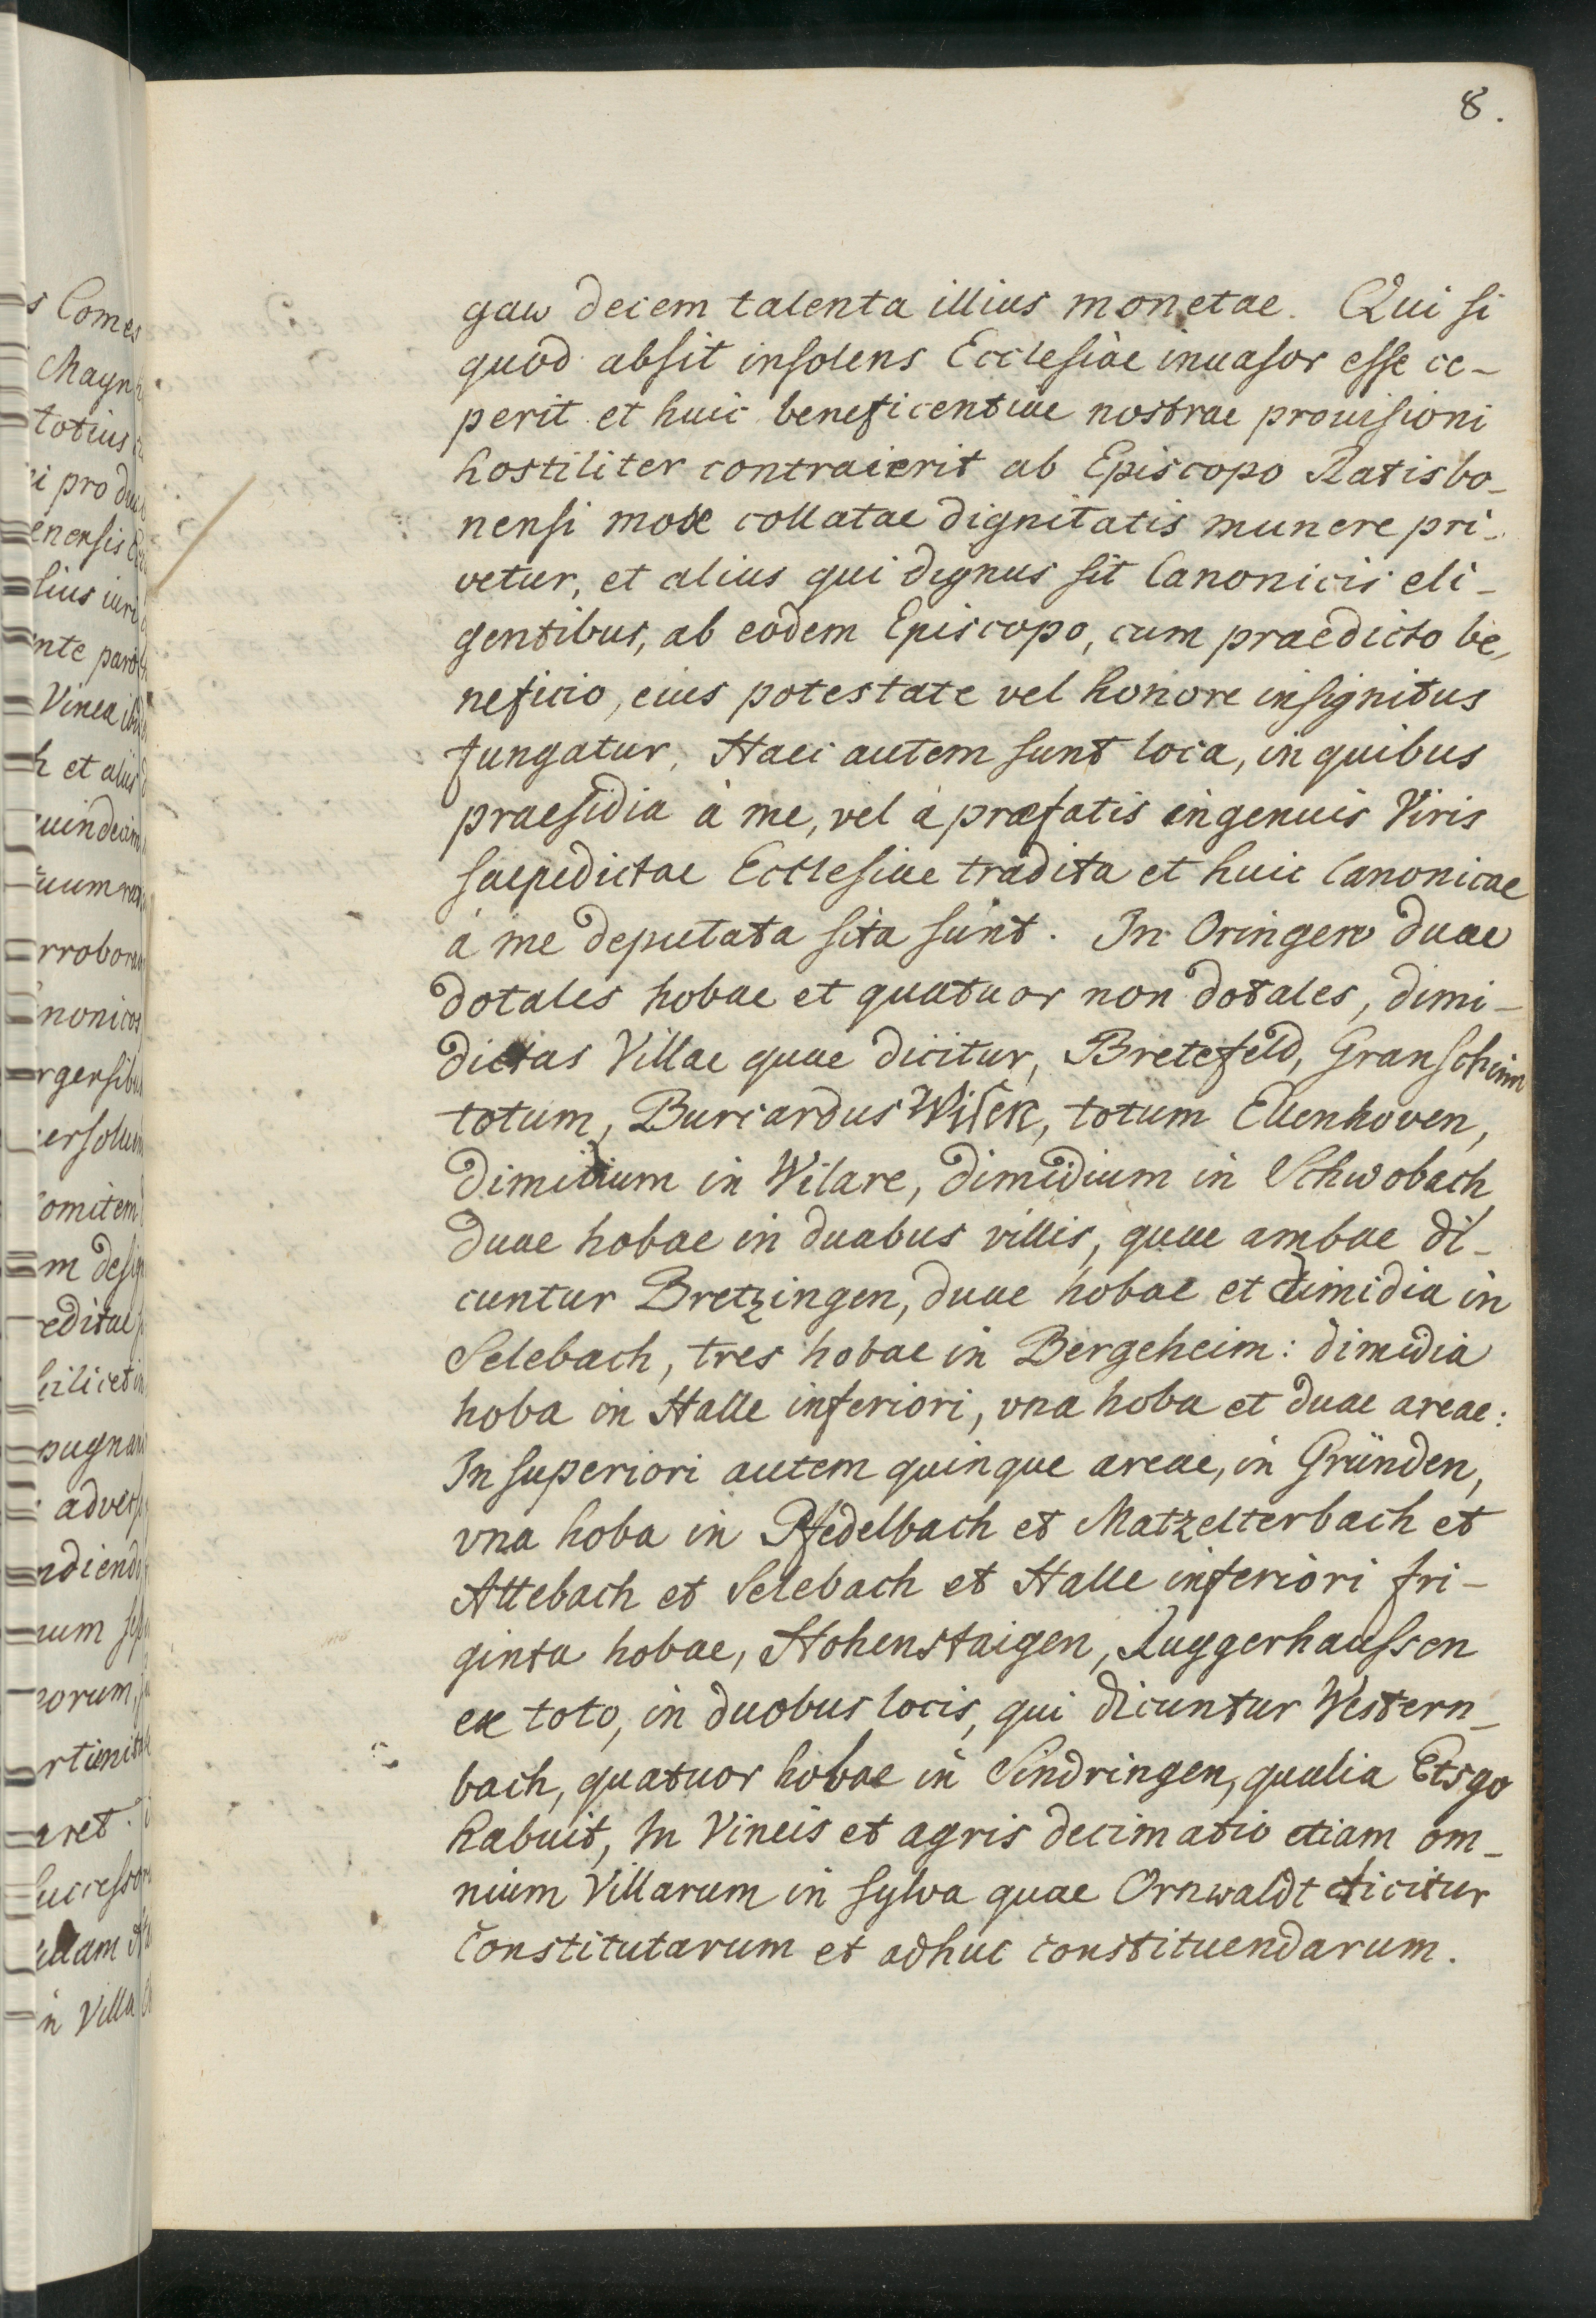 8.
gaw decem talenta illius monetae. Qui si
quod absit insolens Ecclesiae inuasor esse ce-
perit et huic beneficentiae nostrae prouisioni
hostiliter contraierit ab Episcopo Ratisbo-
nensi mox collatae dignitatis munere pri-
vetur, et alius qui dignus sit Canonicis eli-
gentibus, ab eodem Episcopo, cum praedicto be-
neficio, eius potestate vel honore insignitus
fungatur. Haec autem sunt loca, in quibus
praesidia à me, vel à praefatis ingenuis Viris
saepedictae Ecclesiae tradita et huic Canonicae
à me deputata sita sunt. In Oringew duae
dotales hobae et quatuor non dotales, dimi-
dietas Villae quae dicitur, Bretefeld, Granschimm
totum, Burcardus Wisek, totum Ellenhoven,
dimidium in Wilare, dimidium in Schwobach
duae hobae in duabus villis, quae ambae di-
cuntur Bretzingen, duae hobae et dimidia in
Selebach, tres hobae in Bergeheim: dimidia
hoba in Halle inferiori, vna hoba et duae areae:
In superiori autem quinque areae, in Gründen,
vna hoba in Pfedelbach et Matzelterbach et
Attebach et Selebach et Halle inferiori tri-
ginta hobae, Hohenstaigen, Ruggerhaussen
ex toto, in duobus locis, qui dicuntur Western-
bach, quatuor hobae in Sindringen, qualia Etsgo
habuit, In Vineis et agris decimatio etiam om-
nium Villarum in sylva quae Ornwaldt dicitur
constitutarum et adhuc constituendarum.